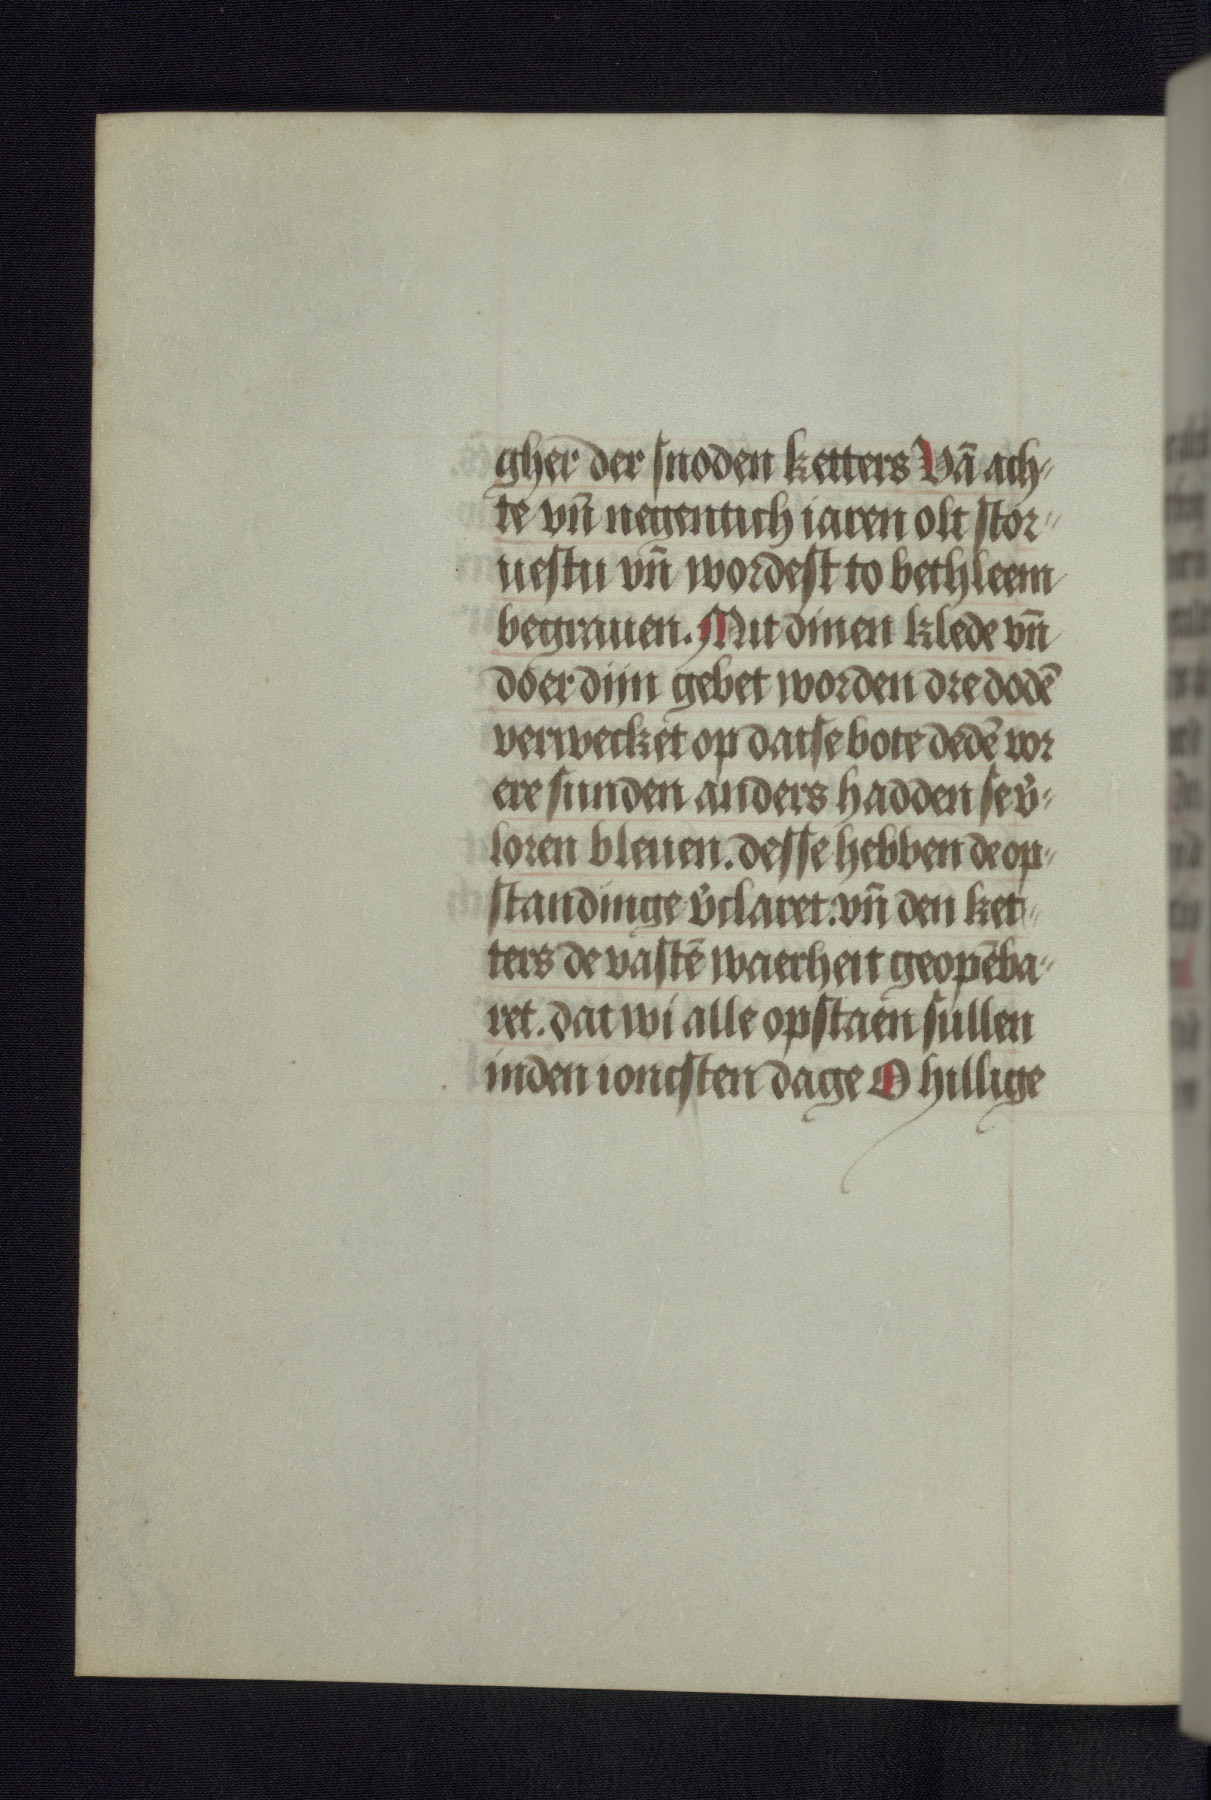 gher der snoden ketters Vā ach-
te vn̄ negentich iaren olt stor-
uestu vn̄ wordest to bethleem
begrauen. Mit dinen klede vn̄
doer dijn gebet worden dre dodē
verwecket op dat se bote dedē vor
ere sunden anders hadden se v̄-
loren bleuen. desse hebben de op-
standinge v̄claret. vn̄ den ket-
ters de vastē waerheit geopēba-
ret. dat wi alle opstaen sullen
inden ioncsten dage O hillige